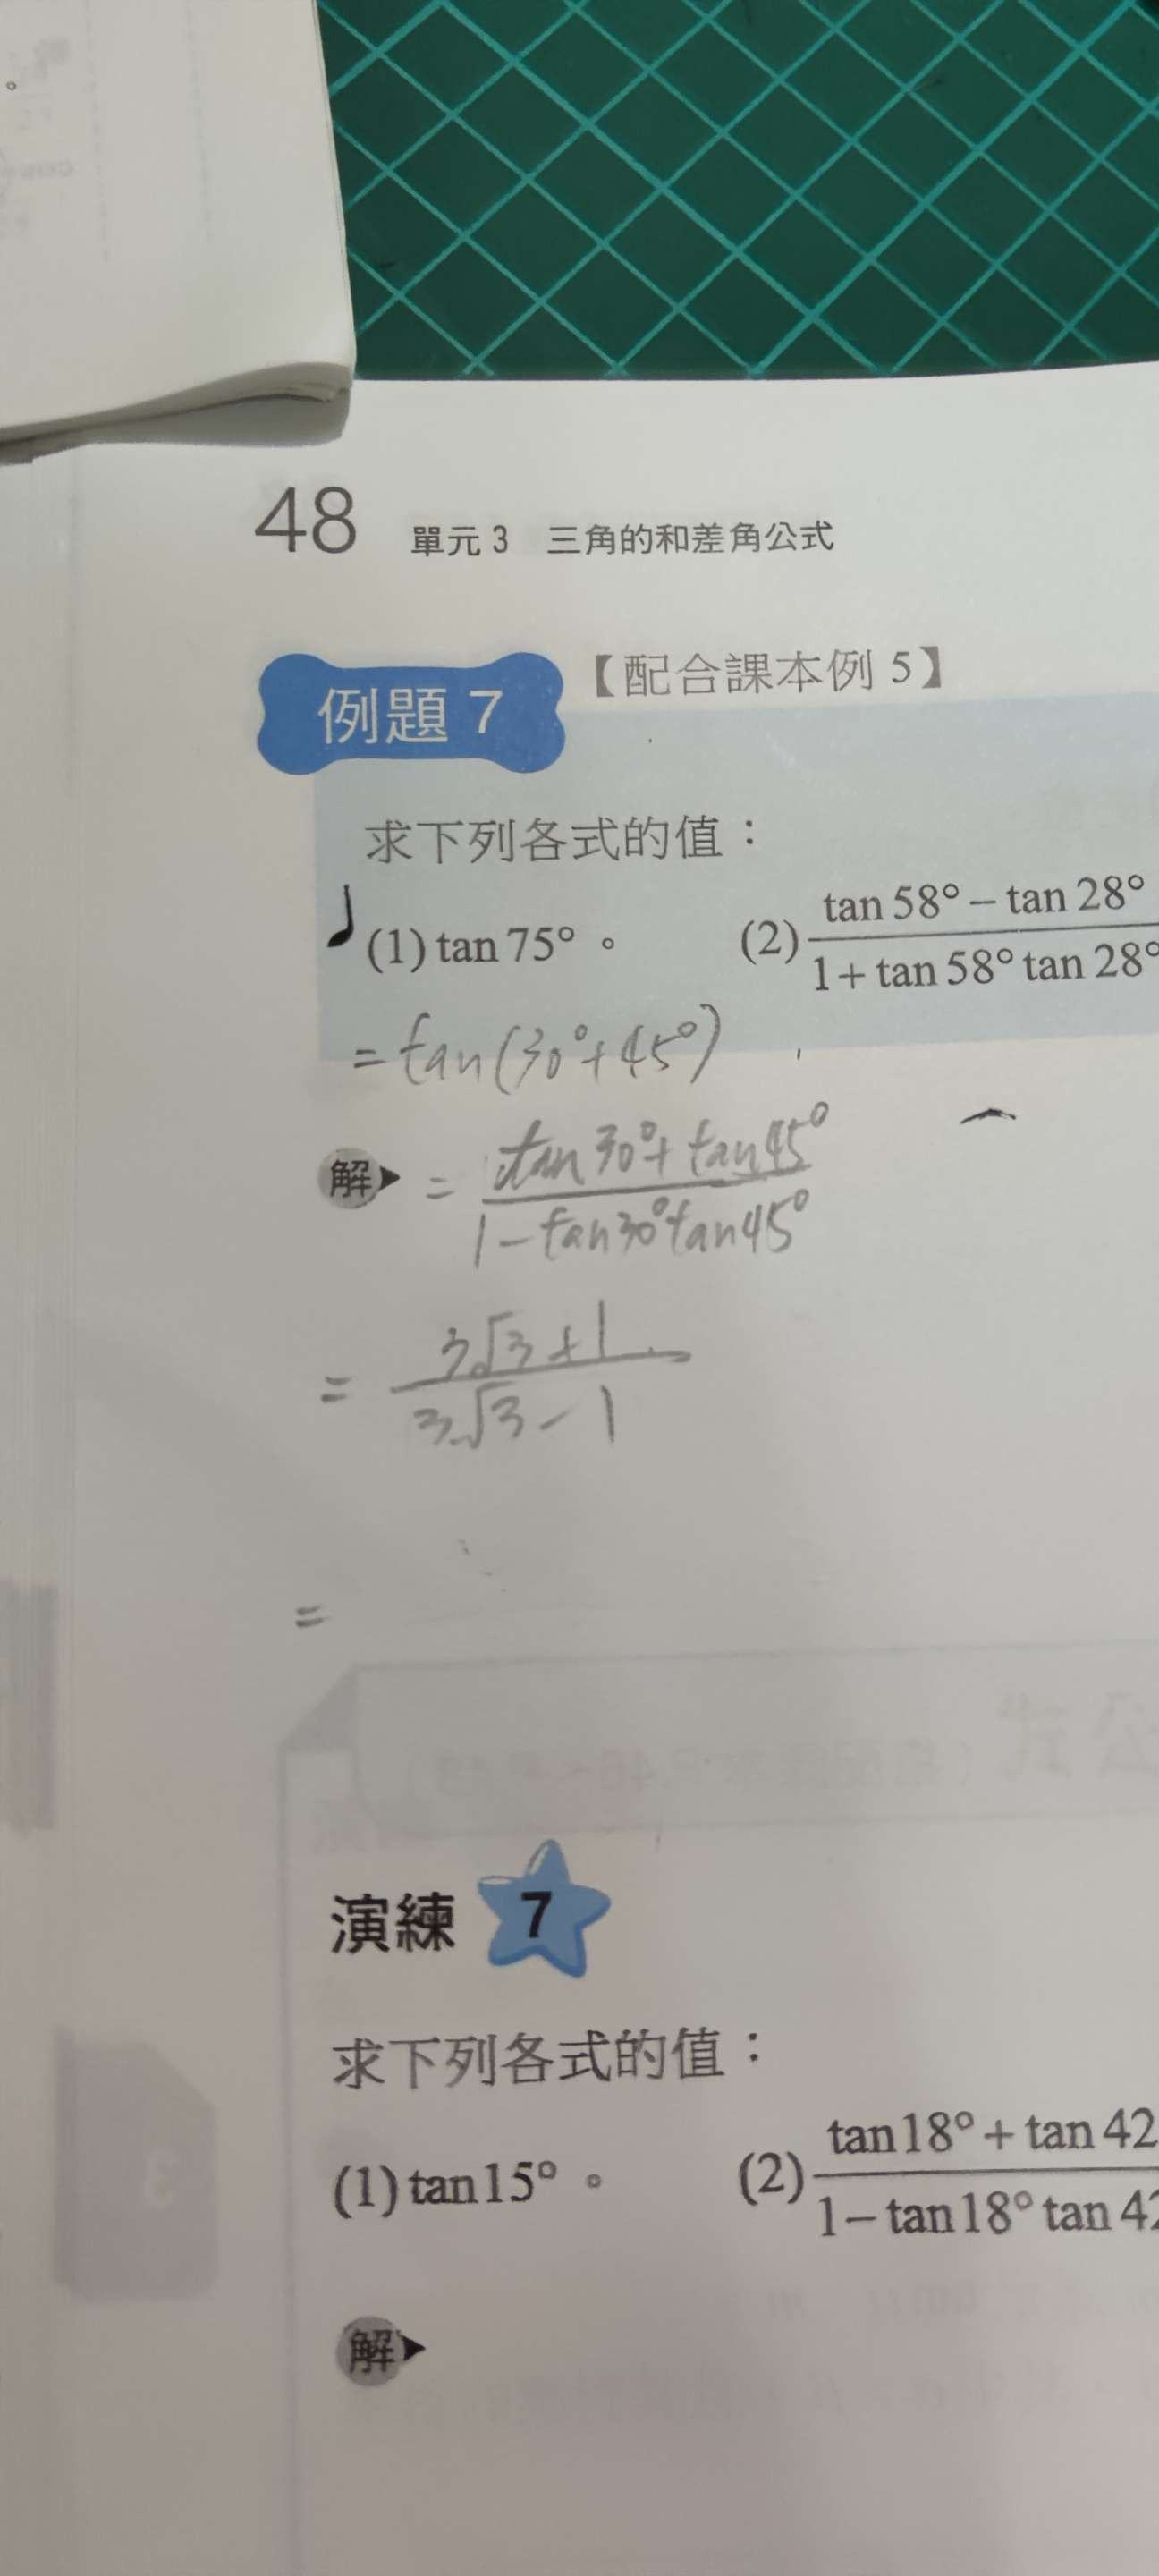 48 單元 3 三角的和差角公式
例題 7 【配合課本例 5】
求下列各式的值：
(1) tan 75° 。 (2) (tan 58° − tan 28°) / (1 + tan 58° tan 28°
= tan(30°+45°)
解 = (tan30°+tan45°) / (1−tan30°tan45°)
= (3√3+1) / (3√3−1)
=
演練 7
求下列各式的值：
(1) tan 15° 。 (2) (tan 18° + tan 42) / (1 − tan 18° tan 42)
解